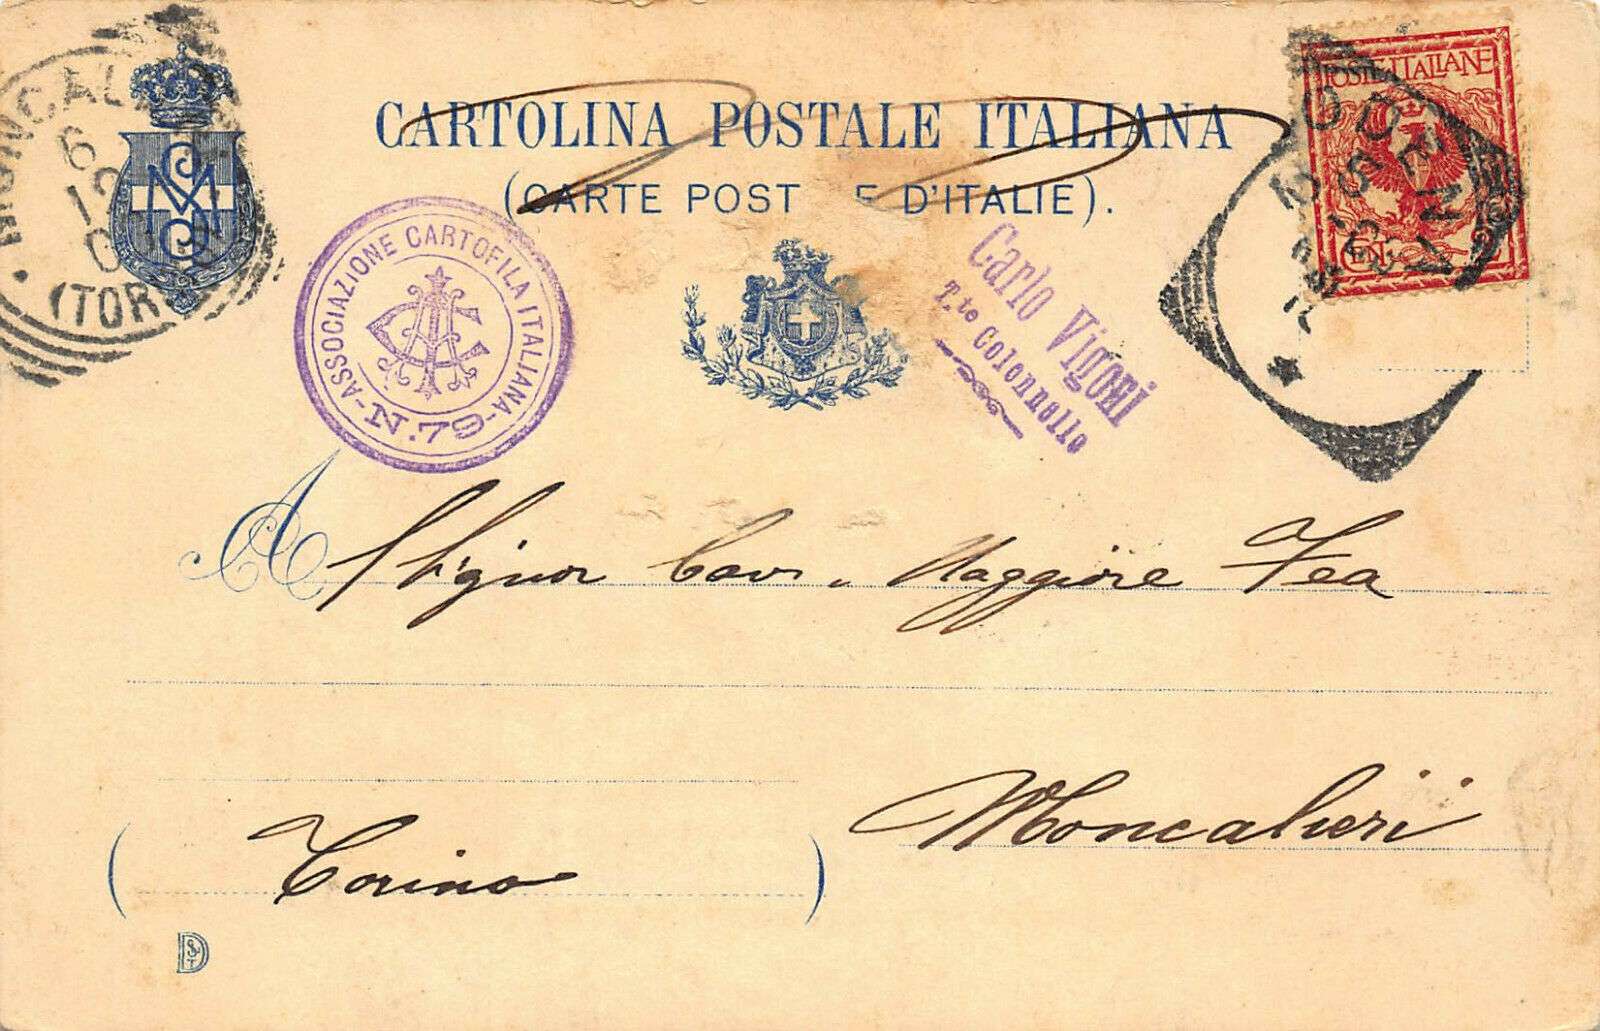 CARTOLINA POSTALE ITALIANA
(CARTE POST E D'ITALIE).
MONCAL
6
12
(TOR
ASSOCIAZIONE CARTOFILA ITALIANA
N.79
Carlo Vigoni
T.te Colonnello
POSTE ITALIANE
CENT. 2
MODENA
A l Signor Cav. Maggiore Fea
Moncalieri
(Torino)